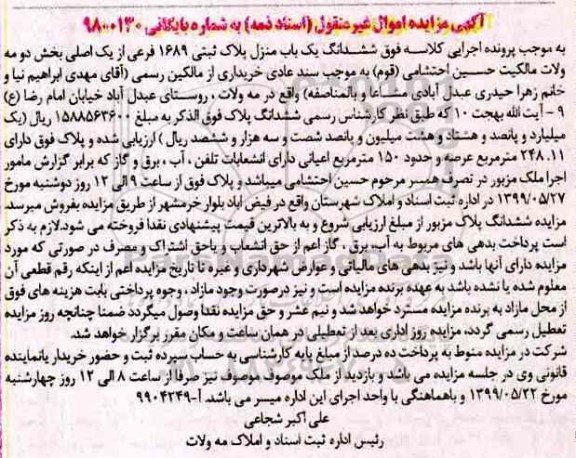 آگهی مزایده اموال غیرمنقول (اسناد ذمه) به شماره بایگانی ۹۸۰۰۱۳۰
به موجب پرونده اجرایی کلاسه فوق ششدانگ یک باب منزل پلاک ثبتی ۱۶۸۹ فرعی از یک اصلی بخش دو مه
ولات مالکیت حسین احتشامی (قوم) به موجب سند عادی خریداری از مالکین رسمی (آقای مهدی ابراهیم نیا و
خانم زهرا حیدری عبدل آبادی مشاعا و بالمناصفه) واقع در مه ولات ، روستای عبدل آباد خیابان امام رضا (ع)
۹ - آیت الله بهجت ۱۰ که طبق نظر کارشناس رسمی ششدانگ پلاک فوق الذکر به مبلغ ۱۵۸۸۵۶۳۶۰۰ ریال (یک
میلیارد و پانصد و هشتاد و هشت میلیون و پانصد شصت و سه هزار و ششصد ریال ) ارزیابی شده و پلاک فوق دارای
۲۴۸.۱۱ مترمربع عرصه و حدود ۱۵۰ مترمربع اعیانی دارای انشعابات تلفن ، آب ، برق و گاز که برابر گزارش مامور
اجرا ملک مزبور در تصرف همسر مرحوم حسین احتشامی میباشد و پلاک فوق از ساعت ۹ الی ۱۲ روز دوشنبه مورخ
۱۳۹۹/۰۵/۲۷ در اداره ثبت اسناد و املاک شهرستان واقع در فیض آباد بلوار خرمشهر از طریق مزایده بفروش میرسد.
مزایده ششدانگ پلاک مزبور از مبلغ ارزیابی شروع و به بالاترین قیمت پیشنهادی نقدا فروخته می شود.لازم به ذکر
است پرداخت بدهی های مربوط به آب، برق ، گاز اعم از حق انشعاب و یاحق اشتراک و مصرف در صورتی که مورد
مزایده دارای آنها باشد و نیز بدهی های مالیاتی و عوارض شهرداری و غیره تا تاریخ مزایده اعم از اینکه رقم قطعی آن
معلوم شده یا نشده باشد به عهده برنده مزایده است و نیز درصورت وجود مازاد ، وجوه پرداختی بابت هزینه های فوق
از محل مازاد به برنده مزایده مسترد خواهد شد و نیم عشر و حق مزایده نقدا وصول میگردد ضمنا چنانچه روز مزایده
تعطیل رسمی گردد، مزایده روز اداری بعد از تعطیلی در همان ساعت و مکان مقرر برگزار خواهد شد.
شرکت در مزایده منوط به پرداخت ده درصد از مبلغ پایه کارشناسی به حساب سپرده ثبت و حضور خریدار یانماینده
قانونی وی در جلسه مزایده می باشد و بازدید از ملک موصوف موصوف نیز صرفا از ساعت ۸ الی ۱۲ روز چهارشنبه
مورخ ۱۳۹۹/۰۵/۲۲ و باهماهنگی با واحد اجرای این اداره میسر می باشد. آ-۹۹۰۴۲۴۹
علی اکبر شجاعی
رئیس اداره ثبت اسناد و املاک مه ولات